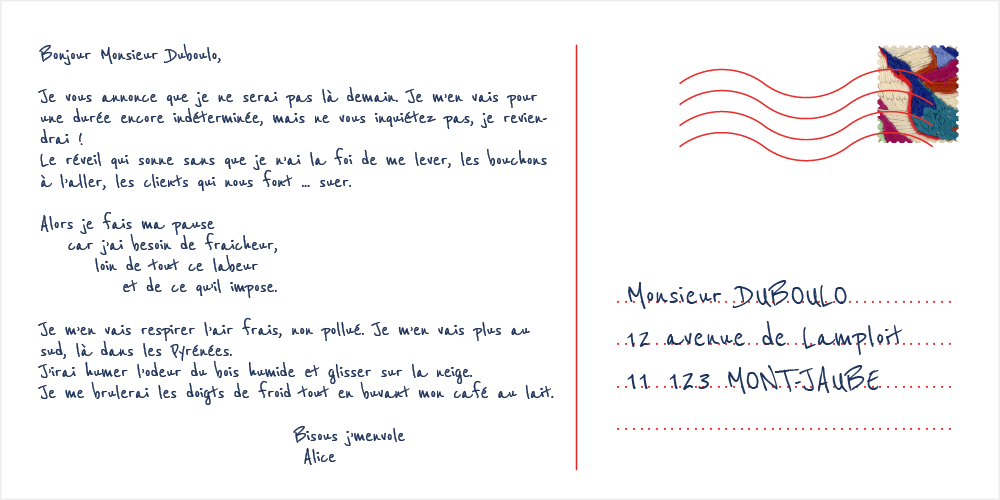 Bonjour Monsieur Duboulo,
Je vous annonce que je ne serai pas là demain. Je m'en vais pour
une durée encore indéterminée, mais ne vous inquiétez pas, je revien-
drai !
Le réveil qui sonne sans que je n'ai la foi de me lever, les bouchons
à l'aller, les clients qui nous font ... suer.
Alors je fais ma pause
car j'ai besoin de fraicheur,
loin de tout ce labeur
et de ce qu'il impose.
Je m'en vais respirer l'air frais, non pollué. Je m'en vais plus au
sud, là dans les Pyrénées.
J'irai humer l'odeur du bois humide et glisser sur la neige.
Je me brulerai les doigts de froid tout en buvant mon café au lait.
Bisous j'menvole
Alice
Monsieur DUBOULO
12 avenue de Lamploit
11 123 MONT-JAUBE